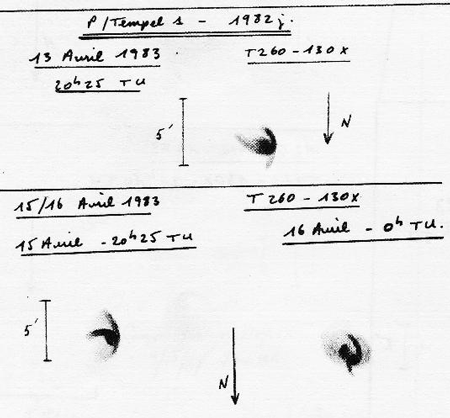 P/Tempel 1 - 1982j.
13 Avril 1983 T260-130x
20h25 TU
5'
N
15/16 Avril 1983 T260-130x
15 Avril - 20h25 TU 16 Avril - 0h TU.
5'
N